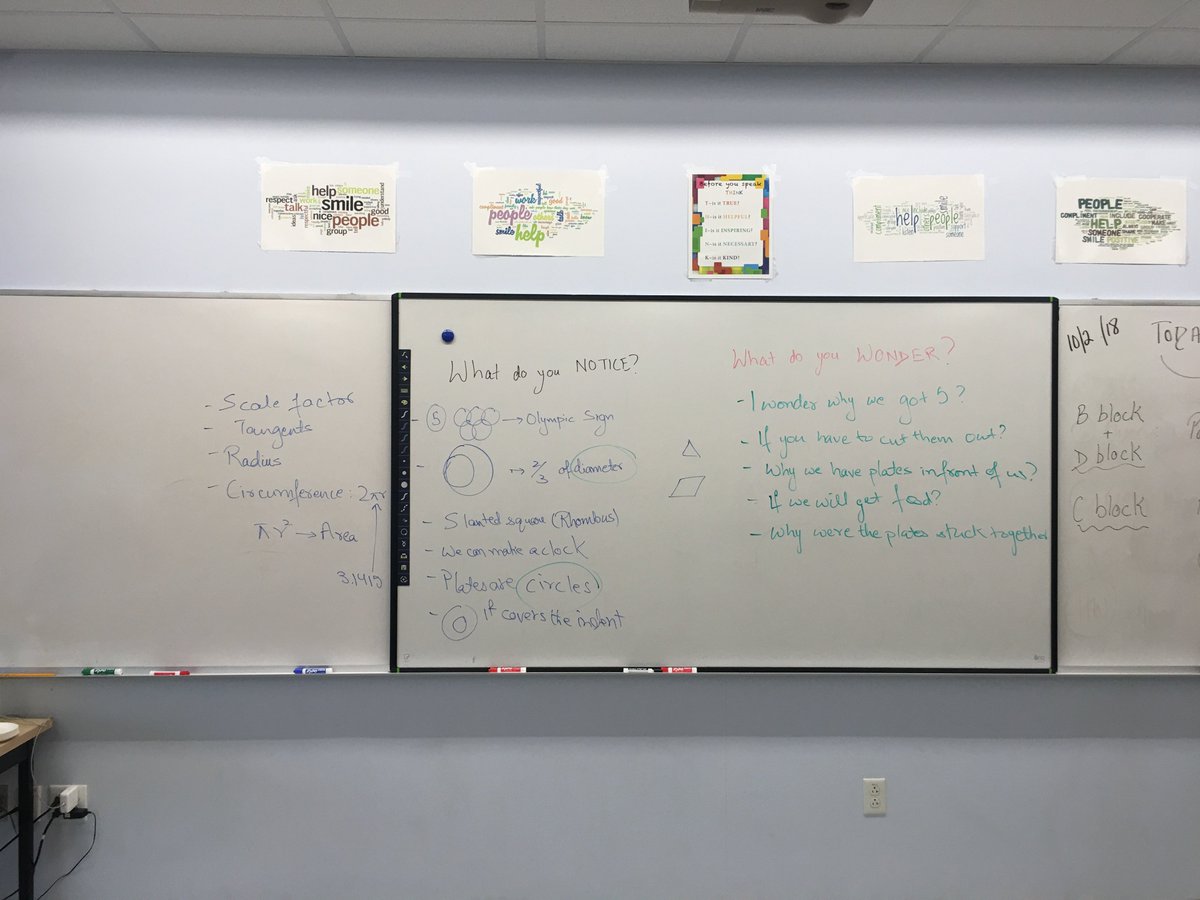 help someone
respect work
talk smile
nice people
good
group
understand
work
good
compliment
people
others
smile help
Before you speak
THINK
T-is it TRUE?
H-is it HELPFUL?
I-is it INSPIRING?
N-is it NECESSARY?
K-is it KIND?
help people
compliment
someone
PEOPLE
COMPLIMENT INCLUDE COOPERATE
HELP
SOMEONE
SMILE POSITIVE
- Scale factor
- Tangents
- Radius
- Circumference: 2πr
πr² → Area
3.1415
What do you NOTICE?
- 5 → Olympic Sign
- → 2/3 of diameter
- Slanted square (Rhombus)
- We can make a clock
- Plates are circles
- it covers the indent
What do you WONDER?
- I wonder why we got 5?
- If you have to cut them out?
- Why we have plates infront of us?
- If we will get food?
- Why were the plates stuck together
10/2/18
B block
+
D block
C block